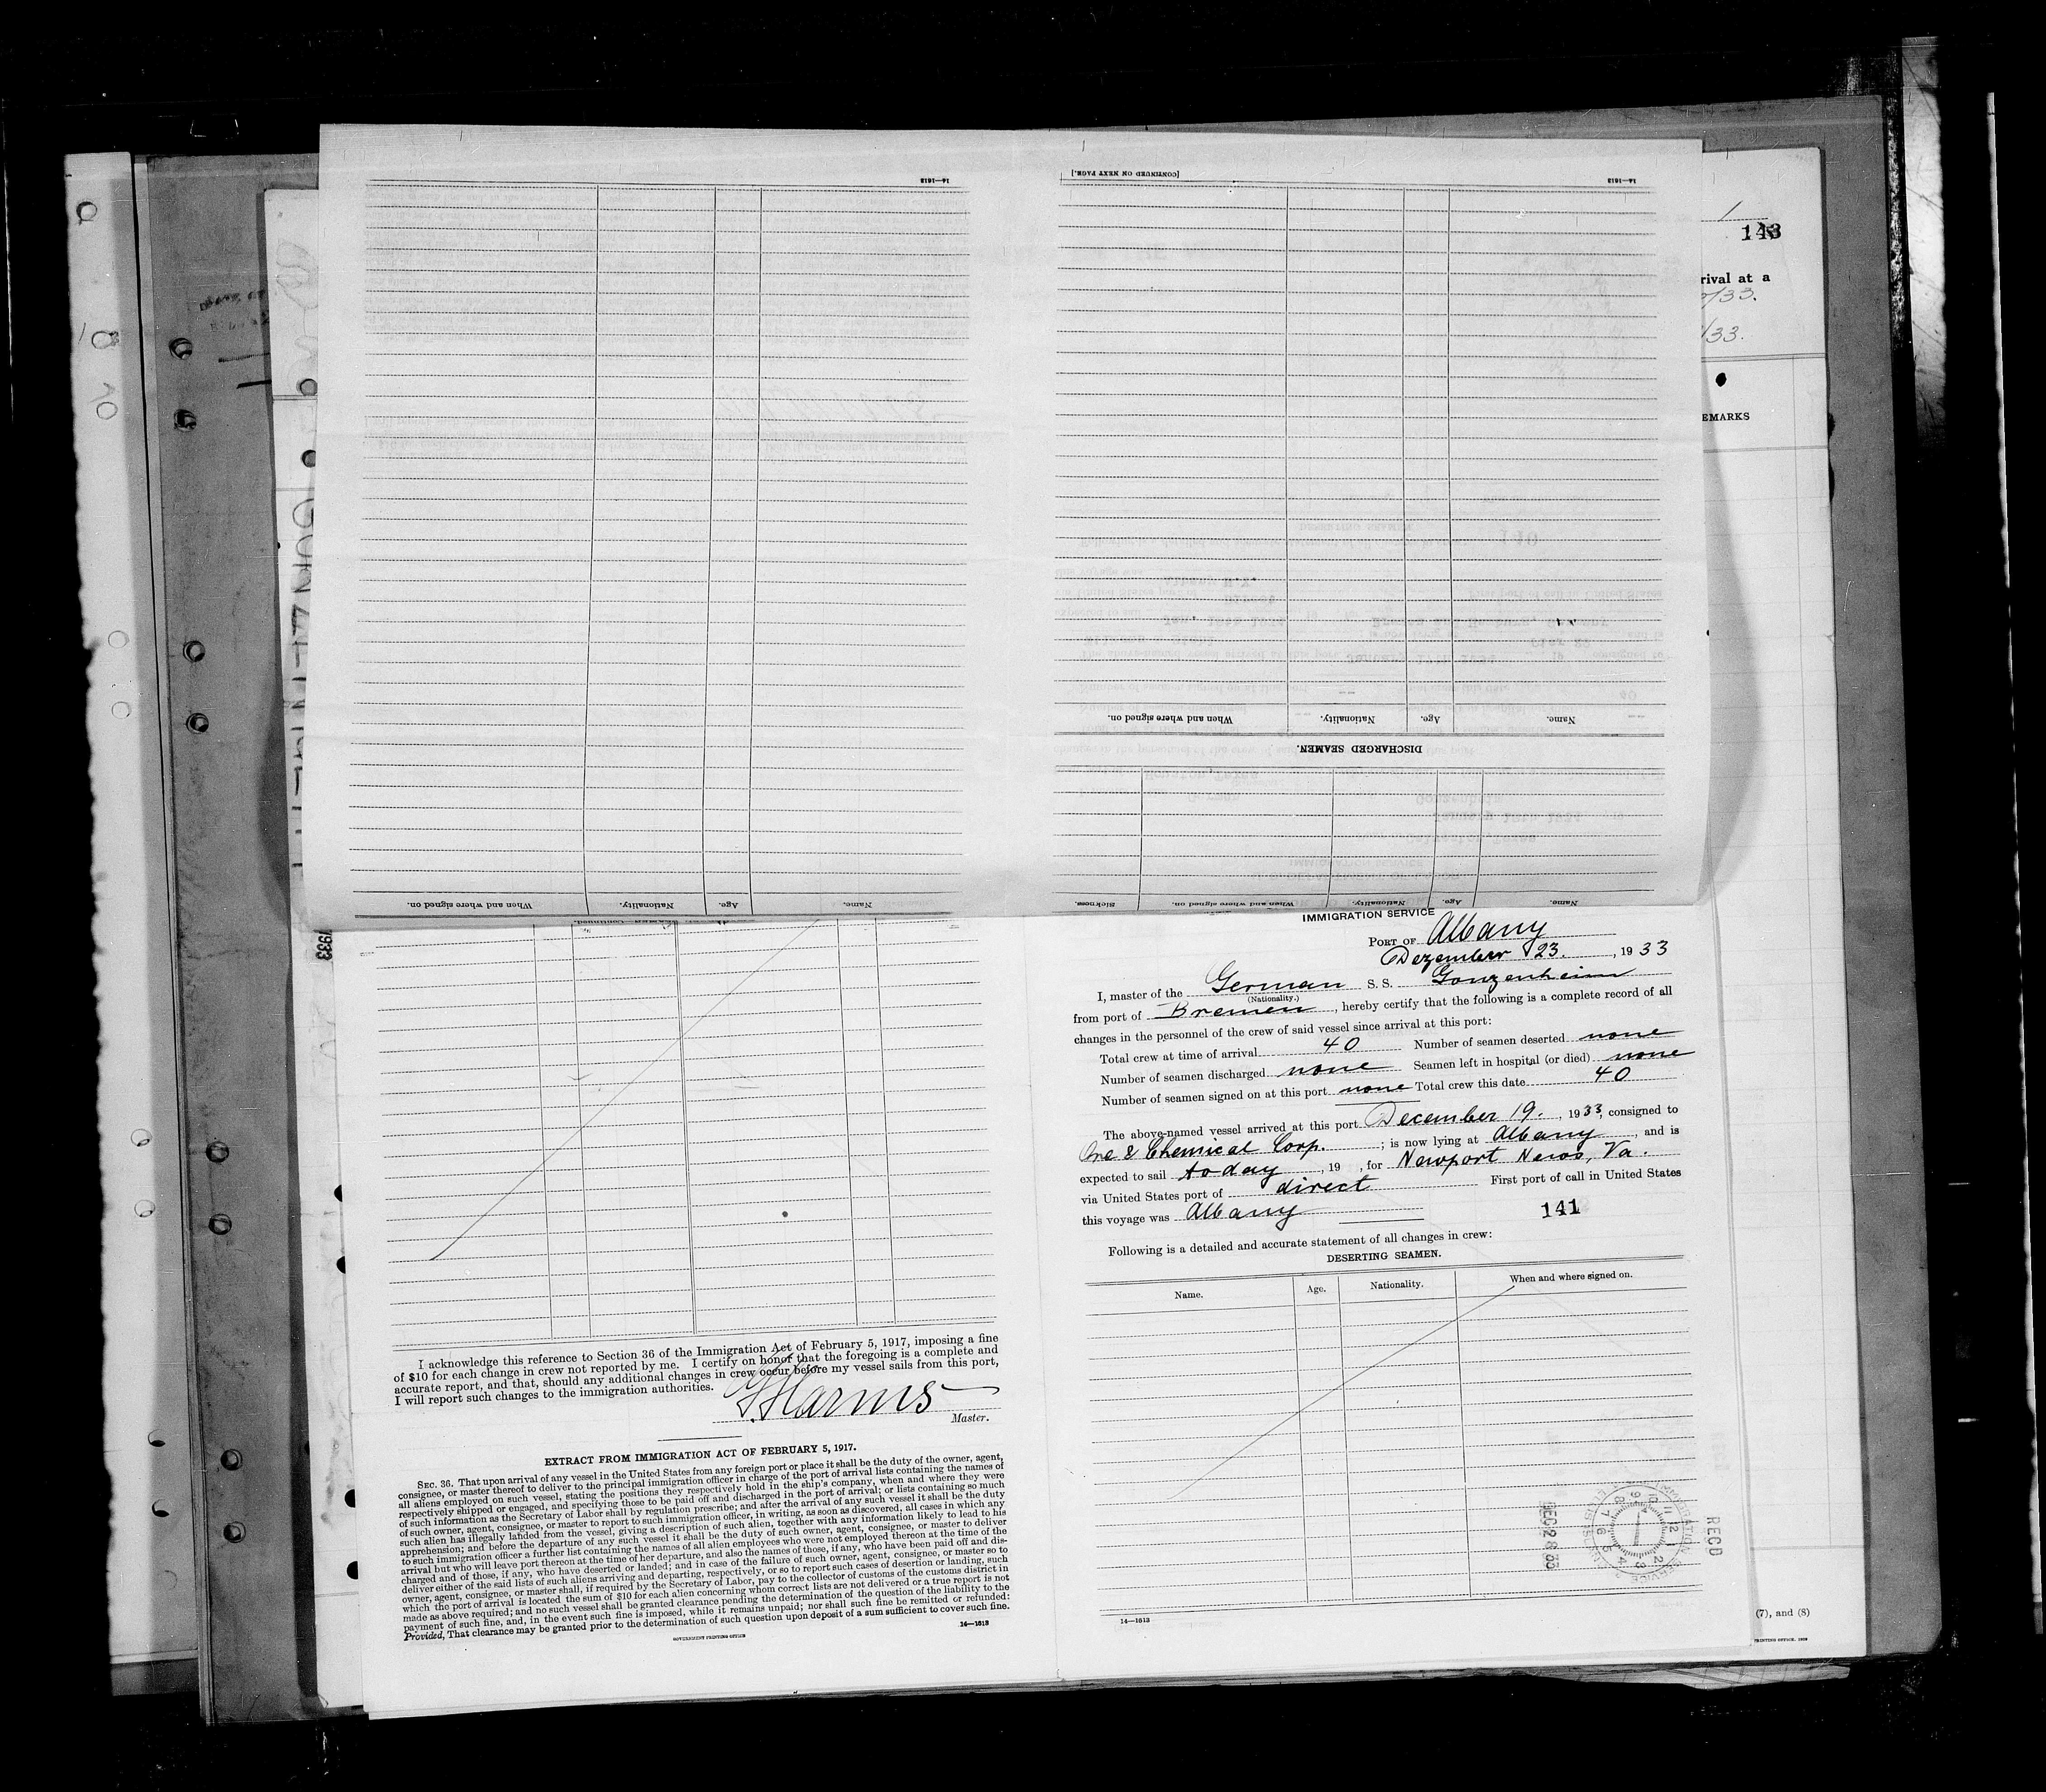 14—1613
[CONTINUED ON NEXT PAGE.]
14—1613
When and where signed on.
Nationality.
Age.
Name.
DISCHARGED SEAMEN.
When and where signed on.
Nationality.
Age.
Name.
Sickness.
When and where signed on.
Nationality.
Age.
Name.
1
143
rival at a
/33.
/33.
EMARKS
1933
IMMIGRATION SERVICE
PORT OF Albany
Dezember 23. , 1933
I, master of the German S. S. Gonzenheim
(Nationality.)
from port of Bremen , hereby certify that the following is a complete record of all
changes in the personnel of the crew of said vessel since arrival at this port:
Total crew at time of arrival 40 Number of seamen deserted none
Number of seamen discharged none Seamen left in hospital (or died) none
Number of seamen signed on at this port none Total crew this date 40
The above-named vessel arrived at this port December 19. , 1933, consigned to
Ore & Chemical Corp. ; is now lying at Albany , and is
expected to sail today , 19 , for Newport News, Va.
via United States port of direct First port of call in United States
this voyage was Albany
141
Following is a detailed and accurate statement of all changes in crew:
DESERTING SEAMEN.
Name. Age. Nationality. When and where signed on.
RECD
DEC 28 33
IMMIGRATION SERVICE
14—1613
(7), and (8)
PRINTING OFFICE, 1929
I acknowledge this reference to Section 36 of the Immigration Act of February 5, 1917, imposing a fine
of $10 for each change in crew not reported by me. I certify on honor that the foregoing is a complete and
accurate report, and that, should any additional changes in crew occur before my vessel sails from this port,
I will report such changes to the immigration authorities.
Harms
Master.
EXTRACT FROM IMMIGRATION ACT OF FEBRUARY 5, 1917.
SEC. 36. That upon arrival of any vessel in the United States from any foreign port or place it shall be the duty of the owner, agent,
consignee, or master thereof to deliver to the principal immigration officer in charge of the port of arrival lists containing the names of
all aliens employed on such vessel, stating the positions they respectively hold in the ship's company, when and where they were
respectively shipped or engaged, and specifying those to be paid off and discharged in the port of arrival; or lists containing so much
of such information as the Secretary of Labor shall by regulation prescribe; and after the arrival of any such vessel it shall be the duty
of such owner, agent, consignee, or master to report to such immigration officer, in writing, as soon as discovered, all cases in which any
such alien has illegally landed from the vessel, giving a description of such alien, together with any information likely to lead to his
apprehension; and before the departure of any such vessel it shall be the duty of such owner, agent, consignee, or master to deliver
to such immigration officer a further list containing the names of all alien employees who were not employed thereon at the time of the
arrival but who will leave port thereon at the time of her departure, and also the names of those, if any, who have been paid off and dis-
charged and of those, if any, who have deserted or landed; and in case of the failure of such owner, agent, consignee, or master so to
deliver either of the said lists of such aliens arriving and departing, respectively, or so to report such cases of desertion or landing, such
owner, agent, consignee, or master shall, if required by the Secretary of Labor, pay to the collector of customs of the customs district in
which the port of arrival is located the sum of $10 for each alien concerning whom correct lists are not delivered or a true report is not
made as above required; and no such vessel shall be granted clearance pending the determination of the question of the liability to the
payment of such fine, and, in the event such fine is imposed, while it remains unpaid; nor shall such fine be remitted or refunded:
Provided, That clearance may be granted prior to the determination of such question upon deposit of a sum sufficient to cover such fine.
GOVERNMENT PRINTING OFFICE
14—1613